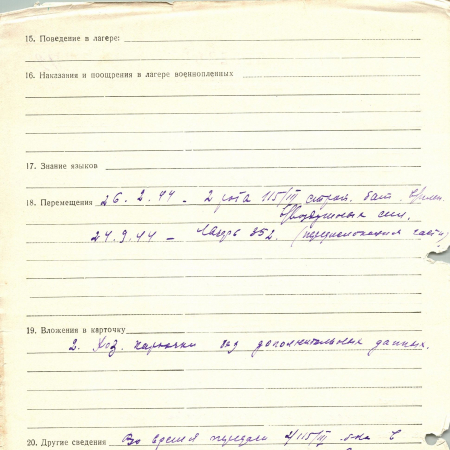 15. Поведение в лагере:
16. Наказания и поощрения в лагере военнопленных
17. Знание языков
18. Перемещения 26. 2. 44 – 2 рота 115/III строй. бат.
Воздушных сил.
24.9.44 – Лагерь 352.
19. Вложения в карточку
2. Хоз. карточки без дополнительных данных.
20. Другие сведения Во время передачи 2/115/III б-на в